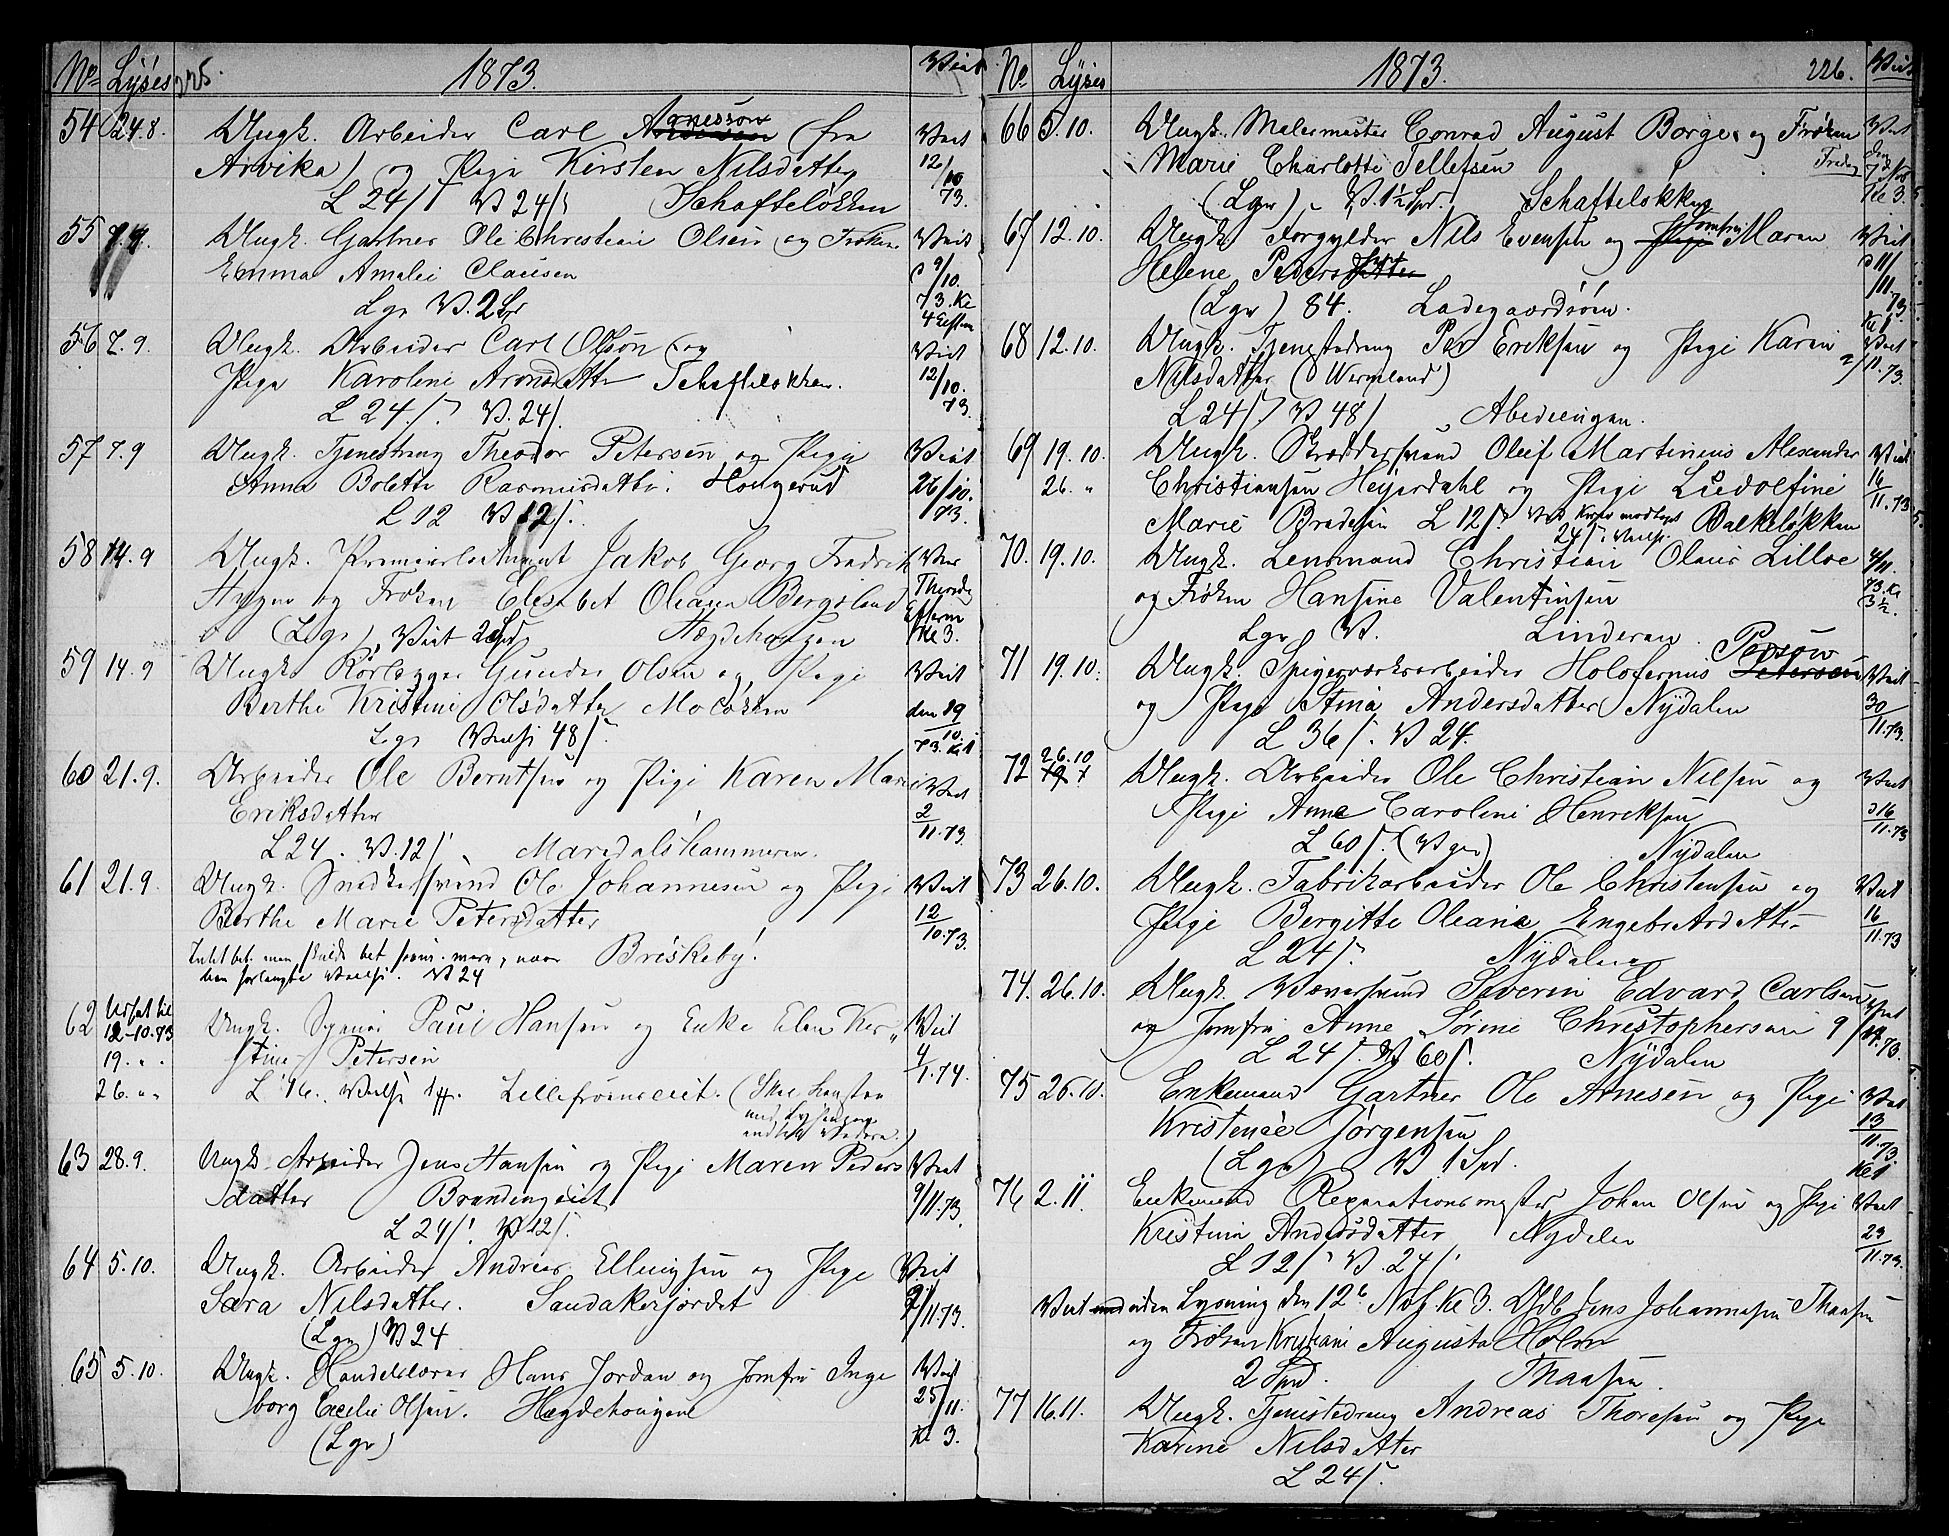 No. Lyses 225. 1873. Viet
54 24.8. Ungk. Arbeider Carl Anesson (fra Viet
Arvika) og Pige Kirsten Nilsdatter 12/10
L 24 ſ V 24 ſ Schafteløkken 73.
55 7.9. Ungk. Gartner Ole Christian Olsen og Frøken Viet
Emma Amalie Clausen 9/10.
Lgr V. 2 Spd 73. Kl 4 Efterm
56 7.9. Ungk. Arbeider Carl Olsøn og Viet
Pige Karoline Aronsdatter Schafteløkken. 12/10.
L 24 ſ. V. 24 ſ. 73.
57 7.9 Ungk. Tjenestdreng Theodor Petersen og Pige Viet
Anna Bolette Rasmusdatter. Hougerud 26/10.
L 12 V 12 ſ. 73.
58 14.9 Ungk. Premierleitnant Jakob Georg Fredrik Vies
og Frøken Elisabet Oleana Bergsland Efterm
(Lgr) Viet 2 Spd Hægdehaugen Kl 3.
59 14.9 Ungk. Rørlægger Gunder Olsen og Pige Viet
Berthe Kristine Olsdatter Moløkken den 19/10.
Lgr Vielse 48 ſ. 73. Kl
60 21.9. Arbeider Ole Berntsen og Pige Karen Marie Viet
Eriksdatter 2/11.73.
L 24. V. 12 ſ Maridalshammeren.
61 21.9. Ungk. Snedkersvend Ole Johannesen og Pige Viet
Berthe Marie Petersdatter 12/10.73.
Intet bet. men skulde bet senere, naar Briskeby.
han forlangte Vielse. V 24
62 Udsat til 12-10.73 Ungk. Paul Hansen og Enke Elen Ker- Viet
19. " " stine Petersen 4/1.74.
26. " " L 16. Vielse Lillefrøeneeiet. (Skal
med Lysningen
63 28.9. Ungk Arbeider Jens Hansen og Pige Maren Peders Viet
datter Brændingeiet 9/11.73.
L 24 ſ. V 12 ſ.
64 5.10. Ungk. Arbeider Andreas Ellingsen og Pige Viet
Sara Nilsdatter. Sandakerjordet /11.73.
(Lgr) V 24
65 5.10. Ungk. Handelslærer Hans Jordan og Jomfru Inge Viet
borg Cecilie Olsen. Hægdehougene 25/11.
(Lgr) Kl 3.
No. Lyses 1873. 226. Viet
66 5.10. Ungk. Malermester Conrad August Borge og Frøken Viet
Marie Charlotte Tellefsen Fredag den 7 Nov
(Lgr) V. 1½ Spd. Schafteløkken Kl 3.
67 12.10. Ungk. Forgylder Nils Evensen og Pige Jomfru Maren Viet
Helene Pedersdatter 11/11.73.
(Lgr) 84. Ladegaardsøen. Kl
68 12.10. Ungk. Tjenestedreng Per Eriksen og Pige Karin Viet
Nilsdatter (Wermland) 2/11.73.
L 24 ſ. V 48 ſ Abediengen.
69 19.10. Ungk. Skræddersvend Oluf Martinius Alexander Viet
26. " Christiansen Heyerdahl og Pige Ludolfine 16/11.73
Marie Bredesen L 12 ſ. Balkeløkken
24 ſ. Vielse.
70. 19.10. Ungk. Lensmand Christian Olaus Lilloe 4/11.
og Frøken Hansine Valentinsen 73. Kl
Lgr V. Linderen. 3½.
71 19.10. Ungk. Spigerværksarbeider Holofernus Petersen Persøn Viet
og Pige Stina Andersdatter Nydalen 30/11.73.
L 36 ſ. V 24.
72 26.10 Ungk. Arbeider Ole Christian Nilsen og Viet
Pige Anne Caroline Henriksen 16/11.73
L 60 ſ. (V gr) Nydalen
73 26.10. Ungk. Fabrikarbeider Ole Christensen og Viet
Pige Bergitte Oleane Engebretsdatter 16/11.73
L 24 ſ. Nydalen
74. 26.10. Ungk. Væversvend Severin Edvard Carlsen Viet
og Jomfru Anne Sørine Christophersen 9/11.73.
L 24 ſ. V 60 ſ. Nydalen
75 26.10. Enkemand Gartner Ole Arnesen og Pige Viet
Kristence Jørgensen 13/11.73.
(Lgr) V 1 Spd. Kl 1
76 2.11. Enkemand Reparationsmester Johan Olsen og Pige Viet
Kristine Andersdatter Nydalen 23/11.73.
L 12 ſ. V. 24 ſ.
Viet uden Lysning den 12te Nov Kl 3. Jens Johannesen Thaasen
og Frøken Kristiane Augusta Holm
2 Spd. Thaasen.
77 16.11. Ungk. Tjenestedreng Andreas Thoresen og Pige
Karine Nilsdatter
L 24 ſ.